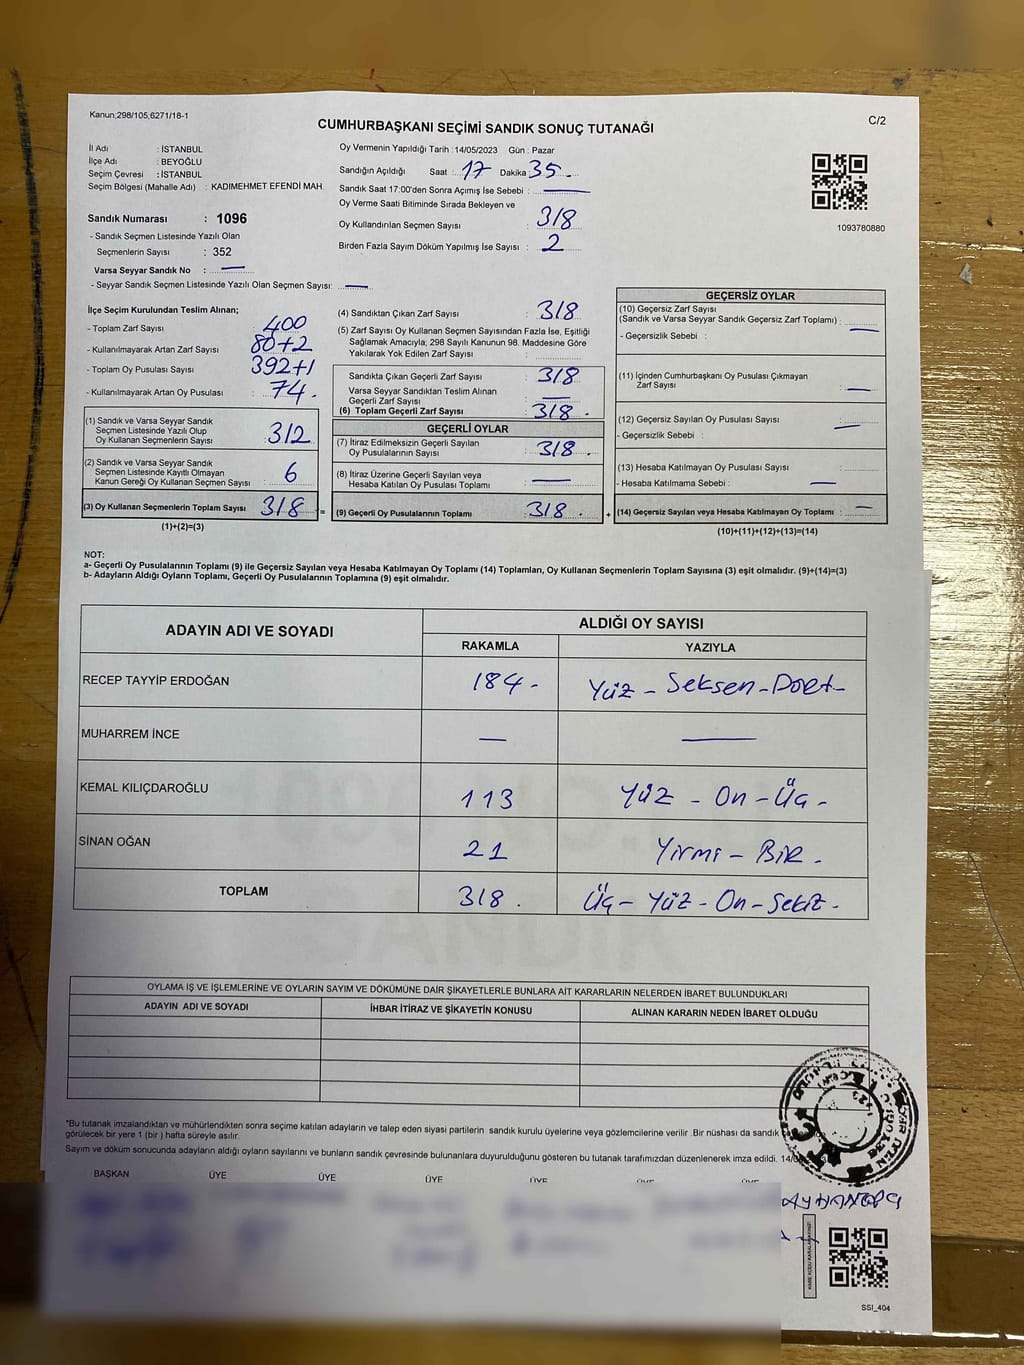 Kanun;298/105,6271/18-1
C/2
CUMHURBAŞKANI SEÇİMİ SANDIK SONUÇ TUTANAĞI
İl Adı : İSTANBUL
İlçe Adı : BEYOĞLU
Seçim Çevresi : İSTANBUL
Seçim Bölgesi (Mahalle Adı) : KADIMEHMET EFENDİ MAH.
Sandık Numarası : 1096
- Sandık Seçmen Listesinde Yazılı Olan
Seçmenlerin Sayısı : 352
Varsa Seyyar Sandık No : —
- Seyyar Sandık Seçmen Listesinde Yazılı Olan Seçmen Sayısı: —
Oy Vermenin Yapıldığı Tarih : 14/05/2023 Gün : Pazar
Sandığın Açıldığı Saat : 17 Dakika : 35.
Sandık Saat 17:00'den Sonra Açımış İse Sebebi : —
Oy Verme Saati Bitiminde Sırada Bekleyen ve
Oy Kullandırılan Seçmen Sayısı : 318
Birden Fazla Sayım Döküm Yapılmış İse Sayısı : 2
1093780880
İlçe Seçim Kurulundan Teslim Alınan;
- Toplam Zarf Sayısı : 400
- Kullanılmayarak Artan Zarf Sayısı : 80+2
- Toplam Oy Pusulası Sayısı : 392+1
- Kullanılmayarak Artan Oy Pusulası : 74.
(1) Sandık ve Varsa Seyyar Sandık
Seçmen Listesinde Yazılı Olup
Oy Kullanan Seçmenlerin Sayısı : 312
(2) Sandık ve Varsa Seyyar Sandık
Seçmen Listesinde Kayıtlı Olmayan
Kanun Gereği Oy Kullanan Seçmen Sayısı : 6
(3) Oy Kullanan Seçmenlerin Toplam Sayısı : 318 =
(1)+(2)=(3)
(4) Sandıktan Çıkan Zarf Sayısı : 318
(5) Zarf Sayısı Oy Kullanan Seçmen Sayısından Fazla İse, Eşitliği
Sağlamak Amacıyla; 298 Sayılı Kanunun 98. Maddesine Göre
Yakılarak Yok Edilen Zarf Sayısı :
Sandıkta Çıkan Geçerli Zarf Sayısı : 318
Varsa Seyyar Sandıktan Teslim Alınan
Geçerli Zarf Sayısı : —
(6) Toplam Geçerli Zarf Sayısı : 318.
GEÇERLİ OYLAR
(7) İtiraz Edilmeksizin Geçerli Sayılan
Oy Pusulalarının Sayısı : 318.
(8) İtiraz Üzerine Geçerli Sayılan veya
Hesaba Katılan Oy Pusulası Toplamı : —
(9) Geçerli Oy Pusulalarının Toplamı : 318. +
GEÇERSİZ OYLAR
(10) Geçersiz Zarf Sayısı
(Sandık ve Varsa Seyyar Sandık Geçersiz Zarf Toplamı) : —
- Geçersizlik Sebebi :
(11) İçinden Cumhurbaşkanı Oy Pusulası Çıkmayan
Zarf Sayısı : —
(12) Geçersiz Sayılan Oy Pusulası Sayısı : —
- Geçersizlik Sebebi :
(13) Hesaba Katılmayan Oy Pusulası Sayısı :
- Hesaba Katılmama Sebebi : —
(14) Geçersiz Sayılan veya Hesaba Katılmayan Oy Toplamı : —
(10)+(11)+(12)+(13)=(14)
NOT:
a- Geçerli Oy Pusulalarının Toplamı (9) ile Geçersiz Sayılan veya Hesaba Katılmayan Oy Toplamı (14) Toplamları, Oy Kullanan Seçmenlerin Toplam Sayısına (3) eşit olmalıdır. (9)+(14)=(3)
b- Adayların Aldığı Oyların Toplamı, Geçerli Oy Pusulalarının Toplamına (9) eşit olmalıdır.
ADAYIN ADI VE SOYADI ALDIĞI OY SAYISI
RAKAMLA YAZIYLA
RECEP TAYYİP ERDOĞAN 184- Yüz - Seksen - Dört -
MUHARREM İNCE — —
KEMAL KILIÇDAROĞLU 113 Yüz - On - Üç -
SİNAN OĞAN 21 Yirmi - Bir.
TOPLAM 318. Üç - Yüz - On - Sekiz -
OYLAMA İŞ VE İŞLEMLERİNE VE OYLARIN SAYIM VE DÖKÜMÜNE DAİR ŞİKAYETLERLE BUNLARA AİT KARARLARIN NELERDEN İBARET BULUNDUKLARI
ADAYIN ADI VE SOYADI İHBAR İTİRAZ VE ŞİKAYETİN KONUSU ALINAN KARARIN NEDEN İBARET OLDUĞU
*Bu tutanak imzalandıktan ve mühürlendikten sonra seçime katılan adayların ve talep eden siyasi partilerin sandık kurulu üyelerine veya gözlemcilerine verilir .Bir nüshası da sandık
görülecek bir yere 1 (bir ) hafta süreyle asılır.
Sayım ve döküm sonucunda adayların aldığı oyların sayılarını ve bunların sandık çevresinde bulunanlara duyurulduğunu gösteren bu tutanak tarafımızdan düzenlenerek imza edildi. 14/
BAŞKAN ÜYE ÜYE ÜYE ÜYE ÜYE ÜYE
SSI_404